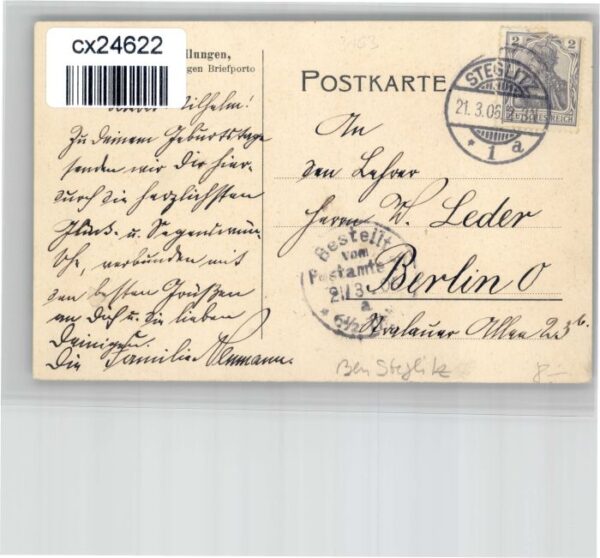 cx24622
llungen,
gen Briefporto
POSTKARTE
2 2
DEUTSCHES REICH
STEGLITZ
21.3.06
* 1 a
Lieber Wilhelm!
Zu deinem Geburtstage
senden wir Dir hier-
durch die herzlichsten
Glück- u. Segenswün-
sche, verbunden mit
den besten Grüßen
an Dich u. die lieben
Deinigen.
Die Familie
An
den Lehrer
Herrn W. Leder
Berlin O
Stralauer Allee 23b.
Bestellt
vom
Postamte
21/3
a
Bln Steglitz
8.-
3163